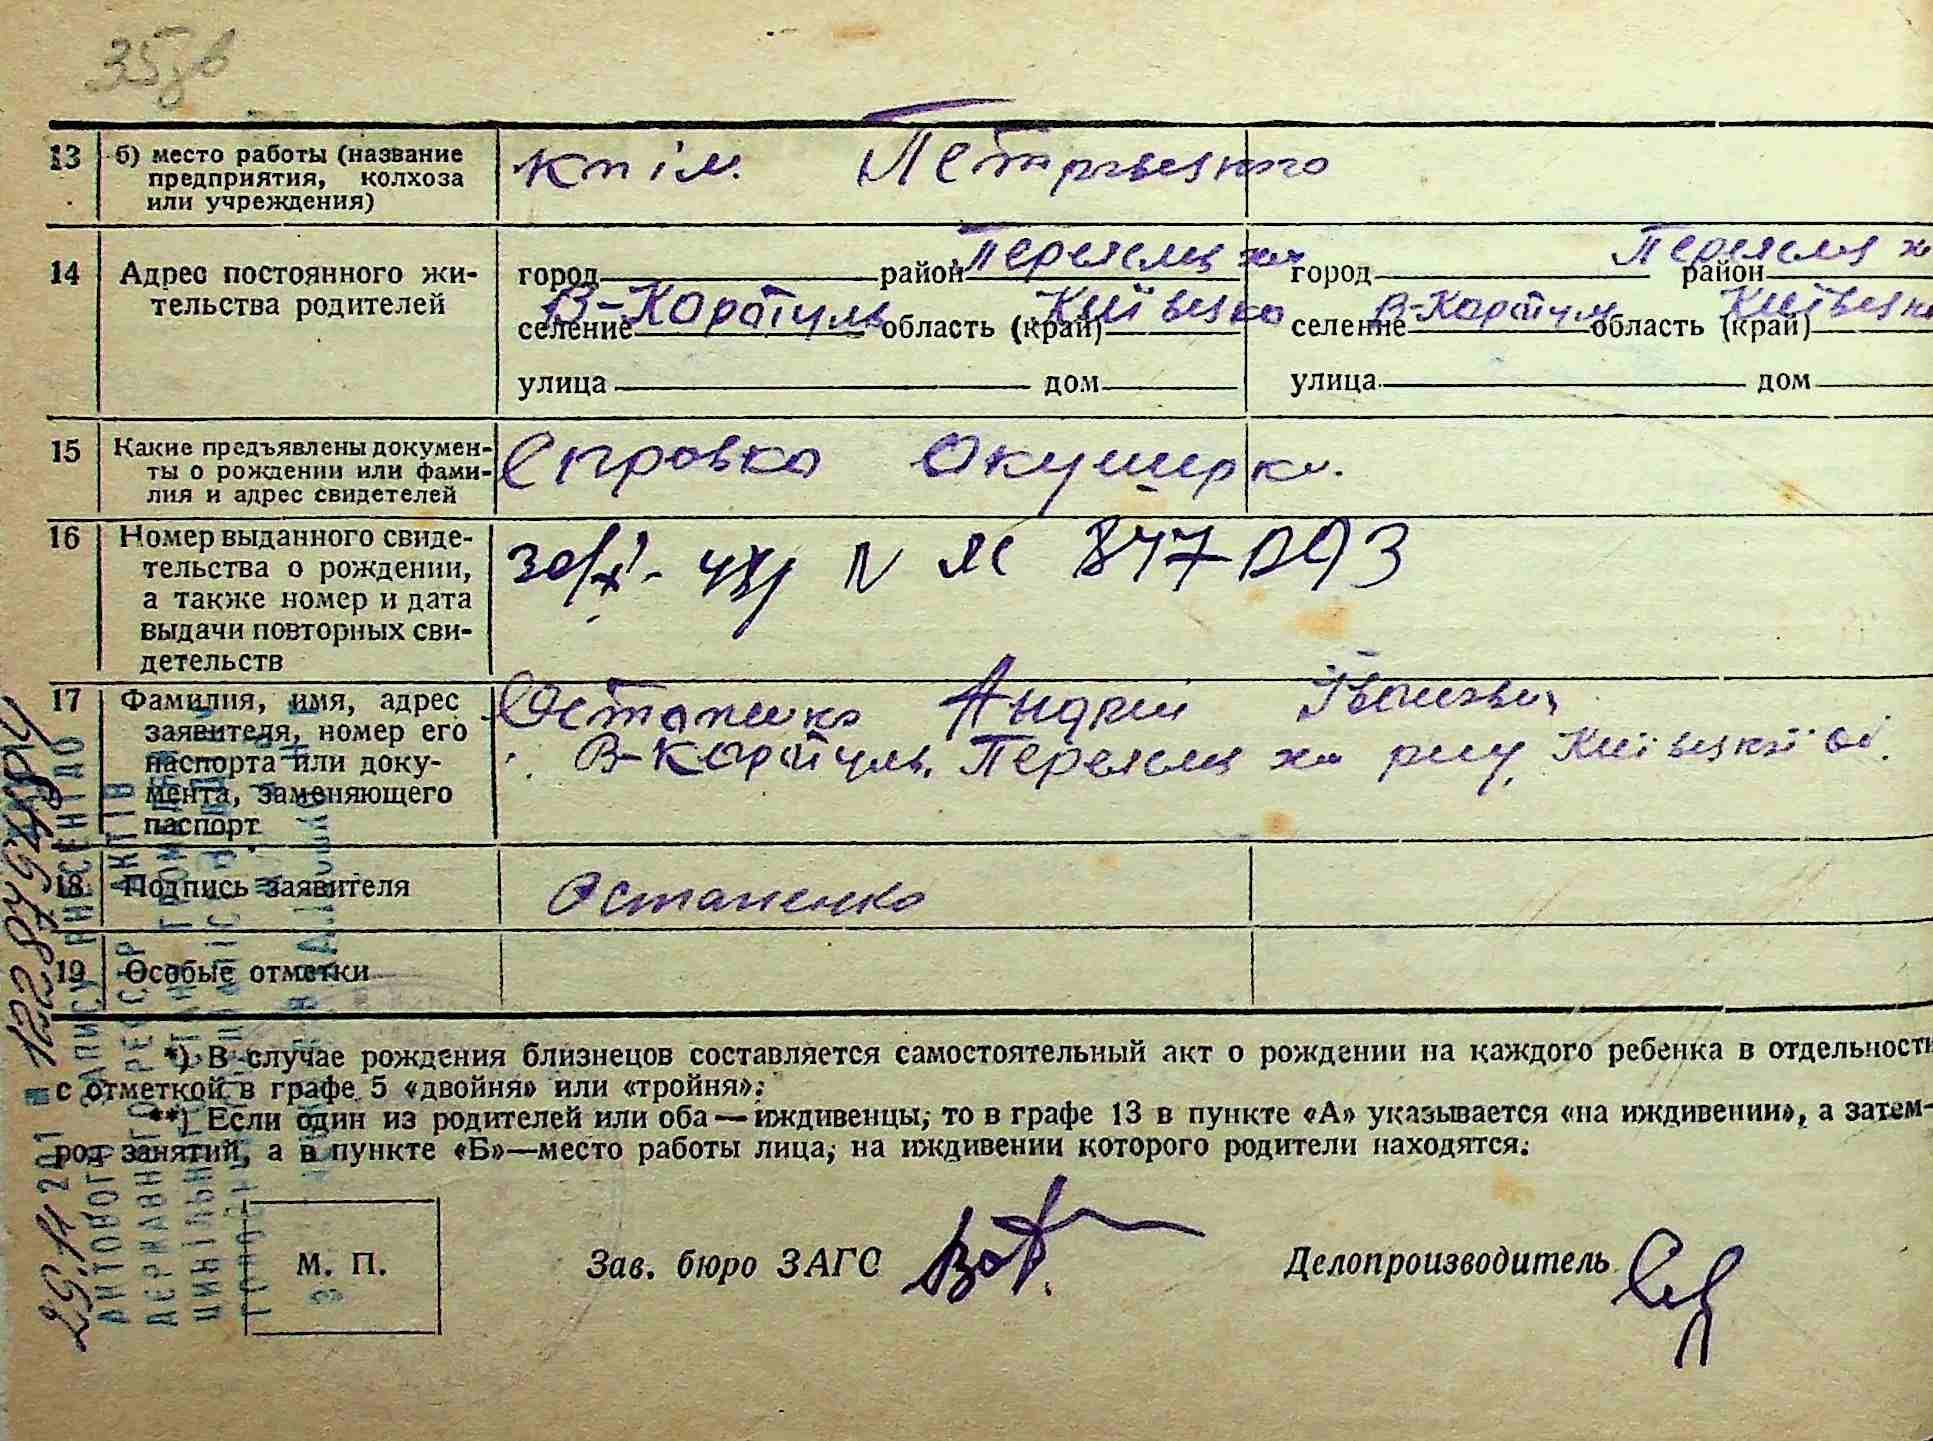 35зв
13 б) место работы (название
предприятия, колхоза
или учреждения)
кп ім. Петровського
14 Адрес постоянного жи-
тельства родителей
город район Переяслав хм город район Переяслав х
селение В-Каратуль область (край) Київсько селение В-Каратуль область (край) Київсько
улица дом улица дом
15 Какие предъявлены докумен-
ты о рождении или фами-
лия и адрес свидетелей
Справка Акушерки.
16 Номер выданного свиде-
тельства о рождении,
а также номер и дата
выдачи повторных сви-
детельств
17 Фамилия, имя, адрес
заявителя, номер его
паспорта или доку-
мента, заменяющего
паспорт
Остапенко Андрій Іванович
В-Каратуль, Переяслав хм р-ну, Київської обл.
18 Подпись заявителя Остапенко
19 Особые отметки
*) В случае рождения близнецов составляется самостоятельный акт о рождении на каждого ребенка в отдельности
с отметкой в графе 5 «двойня» или «тройня».
**) Если один из родителей или оба — иждивенцы, то в графе 13 в пункте «А» указывается «на иждивении», а затем—
род занятий, а в пункте «Б»—место работы лица, на иждивении которого родители находятся.
М. П. Зав. бюро ЗАГС Делопроизводитель